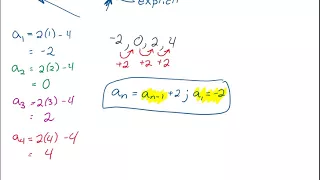 explicit
a₁ = 2(1) - 4
= -2
a₂ = 2(2) - 4
= 0
a₃ = 2(3) - 4
= 2
a₄ = 2(4) - 4
= 4
-2, 0, 2, 4
+2 +2 +2
aₙ = aₙ₋₁ + 2 ; a₁ = -2